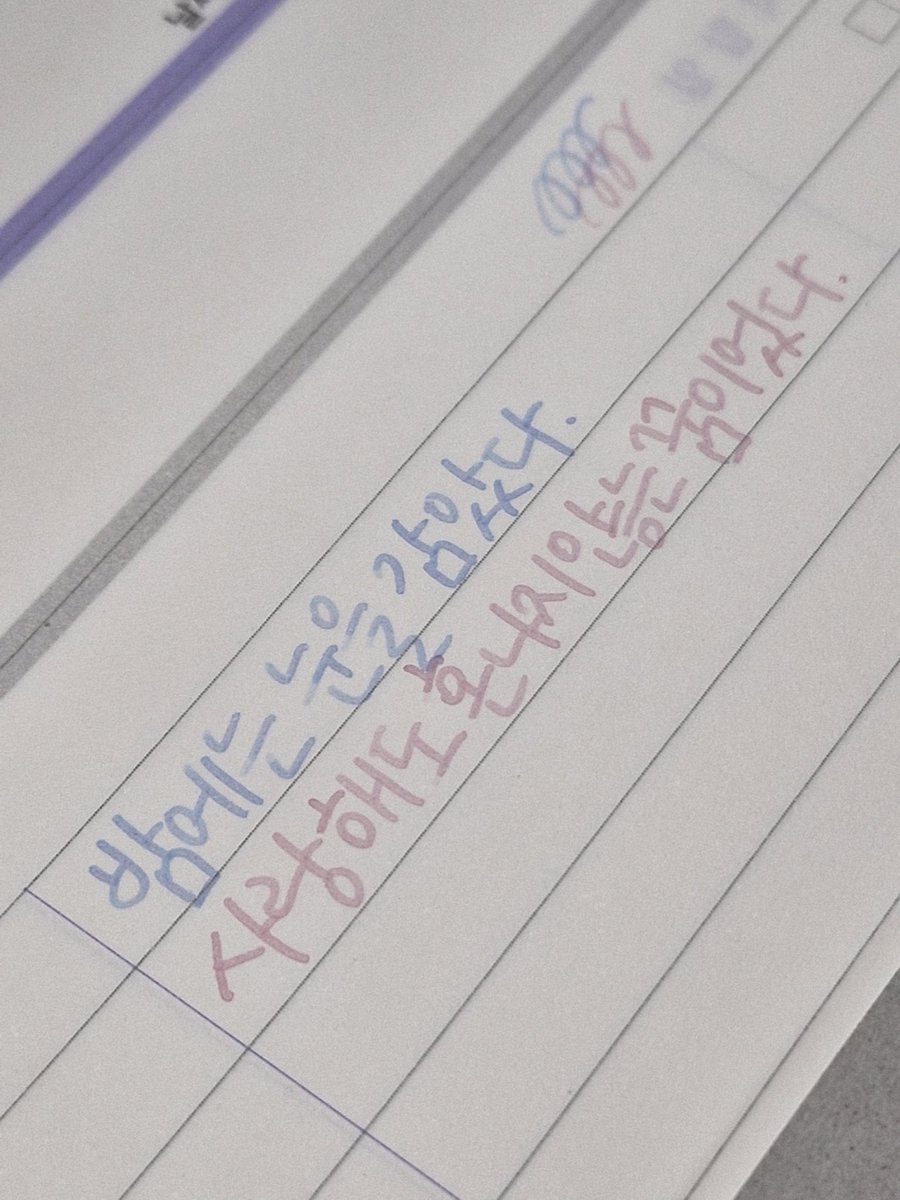 밤에는 눈을 감았다.
사랑해도 혼나지 않는 꿈이었다.